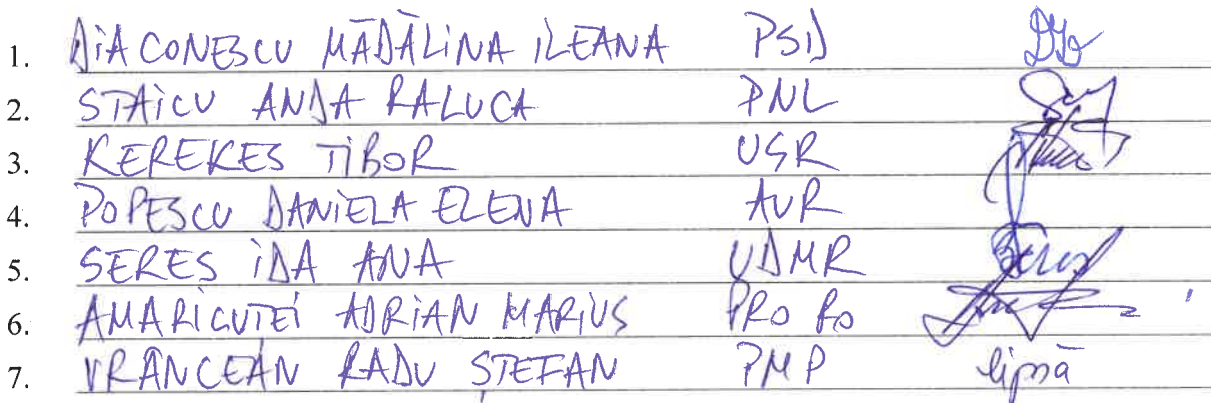 1. DIACONESCU MĂDĂLINA ILEANA PSD
2. STAICU ANDA RALUCA PNL
3. KEREKES TIBOR USR
4. POPESCU DANIELA ELENA AUR
5. SERES IDA ANA UDMR
6. AMARICUTEI ADRIAN MARIUS PRO RO
7. VRÂNCEAN RADU ȘTEFAN PMP lipsă